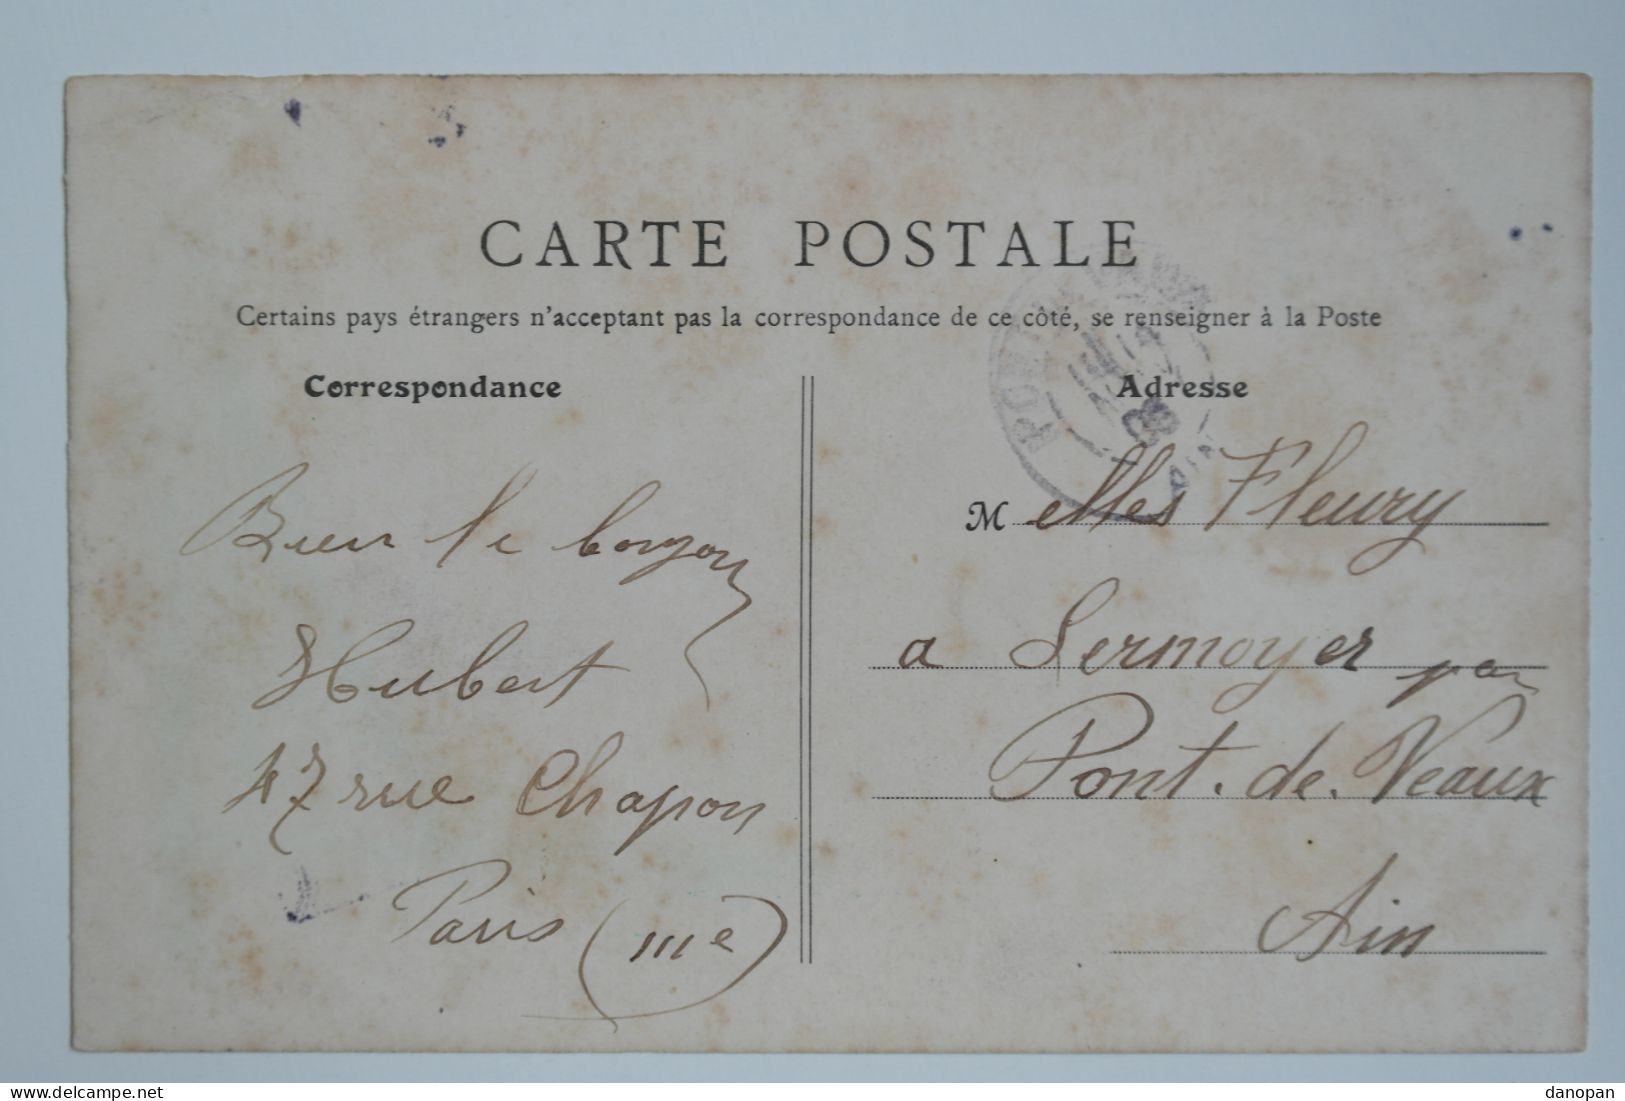 CARTE POSTALE
Certains pays étrangers n'acceptant pas la correspondance de ce côté, se renseigner à la Poste
Correspondance
Bien le bonjour
Hubert
47 rue Chapon
Paris (IIIe)
Adresse
Melles Fleury
a Sermoyer par
Pont-de-Veaux
Ain
08
AIN
delcampe.net
danopan